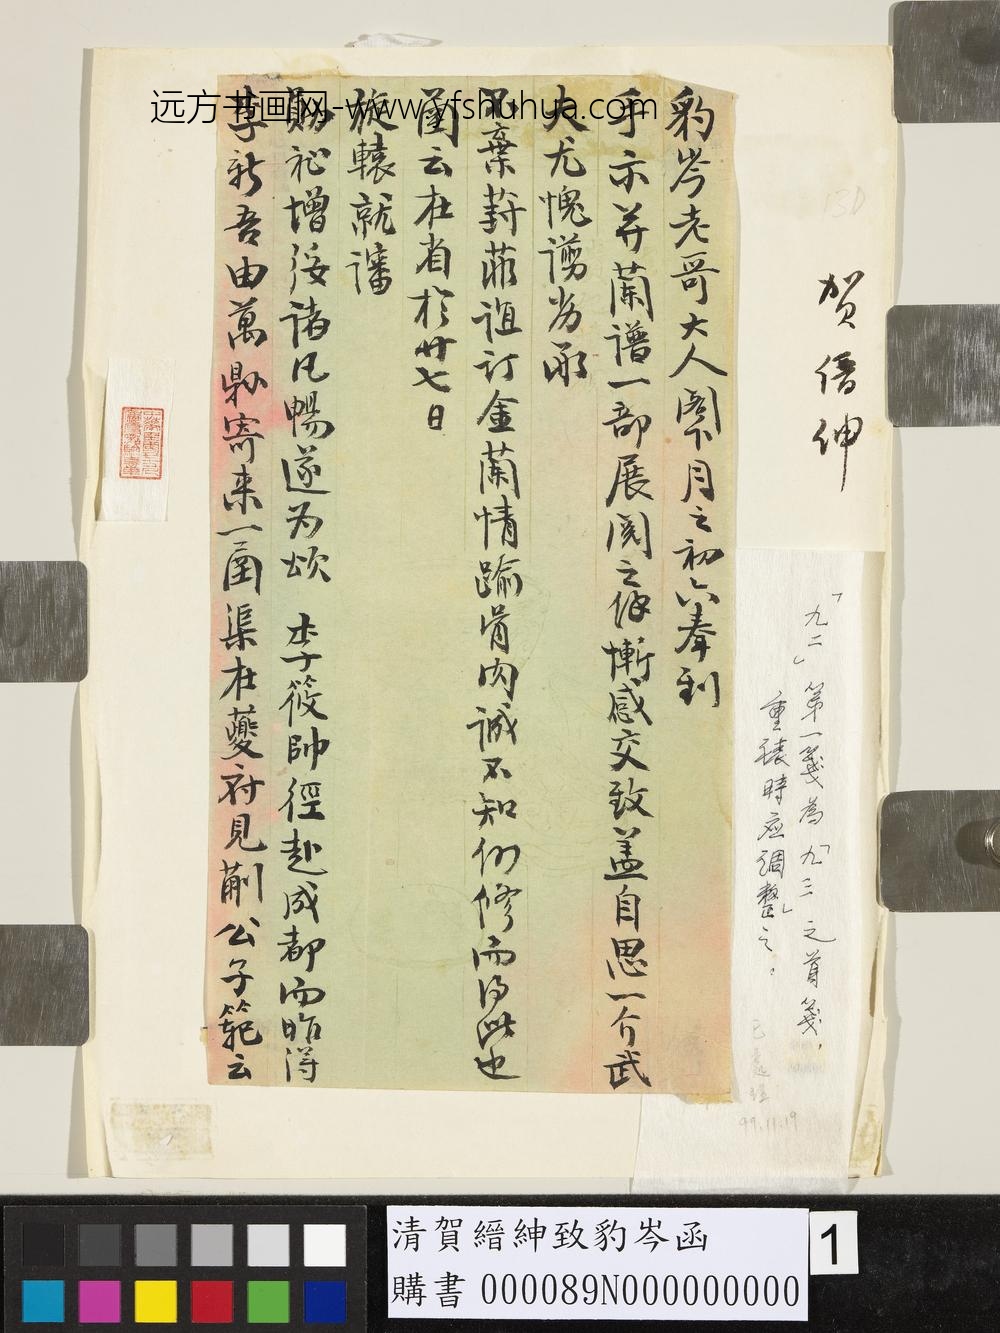 远方书画网-www.yfshuhua.com
豹岑老哥大人閣下月之初六奉到
手示并蘭譜一部展閱之餘慚感交致蓋自思一介武
夫尤愧譾劣承
不棄葑菲誼訂金蘭情踰骨肉誠不知何修而得此也
藺云在省於廿七日
旋轅就讅
勛祉增綏諸凡暢遂为頌 李筱帥徑赴成都而昨得
李新吾由萬縣寄來一函渠在夔府見蒯公子範云
賀縉紳
「九二」第一箋為「九三」之首箋,
重裱時应調整之。
99.11.19
130
清賀縉紳致豹岑函
購書 000089N000000000
1